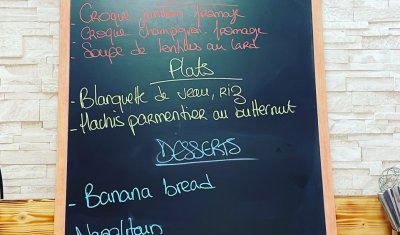 - Croque jambon fromage
- Croque champignon fromage
- Soupe de lentilles au lard
Plats
- Blanquette de veau, riz
- Hachis parmentier au butternut
DESSERTS
- Banana bread
Napolitain